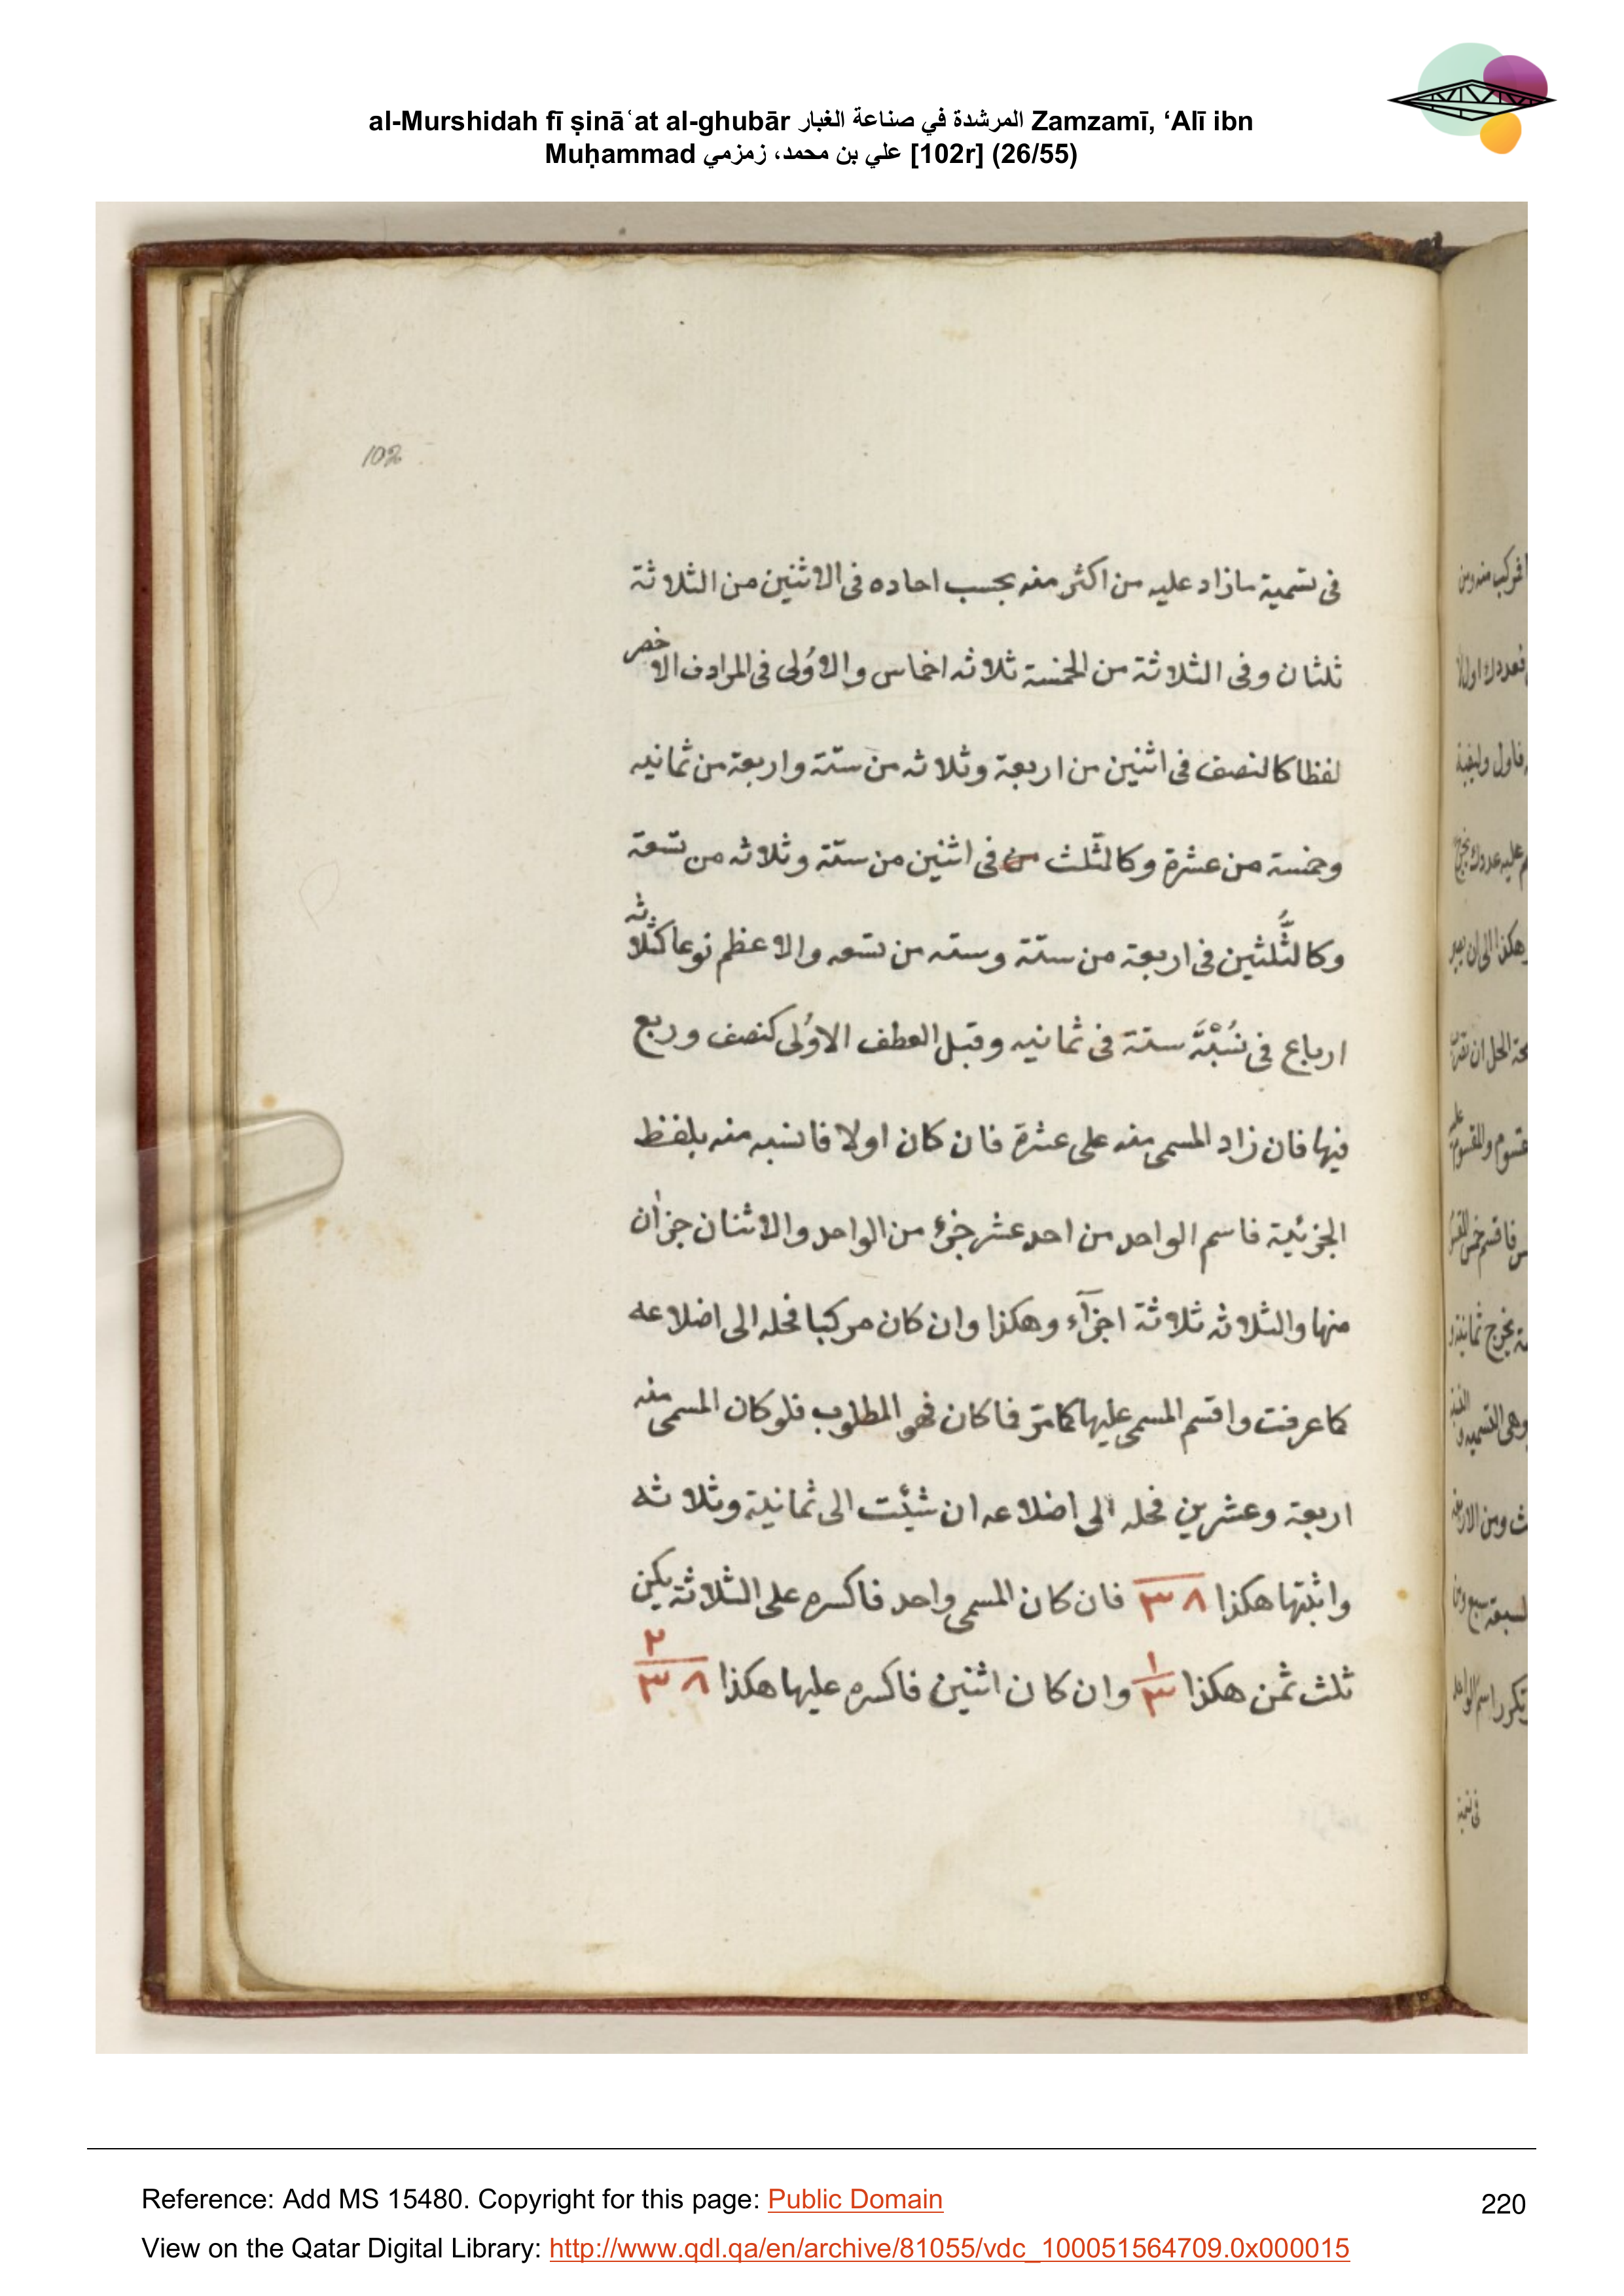 al-Murshidah fī ṣināʿat al-ghubār المرشدة في صناعة الغبار Zamzamī, ‘Alī ibn
Muḥammad علي بن محمد، زمزمي [102r] (26/55)
102
فى تسمية مازاد عليه من اكثر منه بحسب احاده فى الاثنين من الثلاثة
ثلثان وفى الثلاثة من الخمسة ثلاثه اخماس والاوُلى فى المرادف الاخصر
لفظا كالنصف فى اثنين من اربعة وثلاثه من ستة واربعة من ثمانيه
وخمسة من عشرة وكالثلث من فى اثنين من ستة وثلاثه من تسعة
وكالثُّلثين فى اربعة من ستة وسته من تسعه والاعظم نوعا كثلاثه
ارباع فى نسْبَة ستة فى ثمانيه وقبل العطف الاوُلى كنصف وربع
فيها فان زاد المسمى منه على عشرة فان كان اولا فانسبه منه بلفظ
الجزئية فاسم الواحد من احد عشر جزؤ من الواحد والاثنان جزأن
منها والثلاثه ثلاثة اجزآء وهكذا وان كان مركبا فحله الى اضلاعه
كما عرفت واقسم المسمى عليها كما مرّ فما كان فهو المطلوب فلو كان المسمى منه
اربعة وعشرين فحله الى اضلاعه ان شئت الى ثمانية وثلاثه
واثبتها هكذا ٣ ٨ فان كان المسمى واحد فاكسره على الثلاثة يكن
ثلث ثمن هكذا ١ ٣ وان كان اثنين فاكسره عليها هكذا ٢ ٣ ٨
Reference: Add MS 15480. Copyright for this page: Public Domain
220
View on the Qatar Digital Library: http://www.qdl.qa/en/archive/81055/vdc_100051564709.0x000015